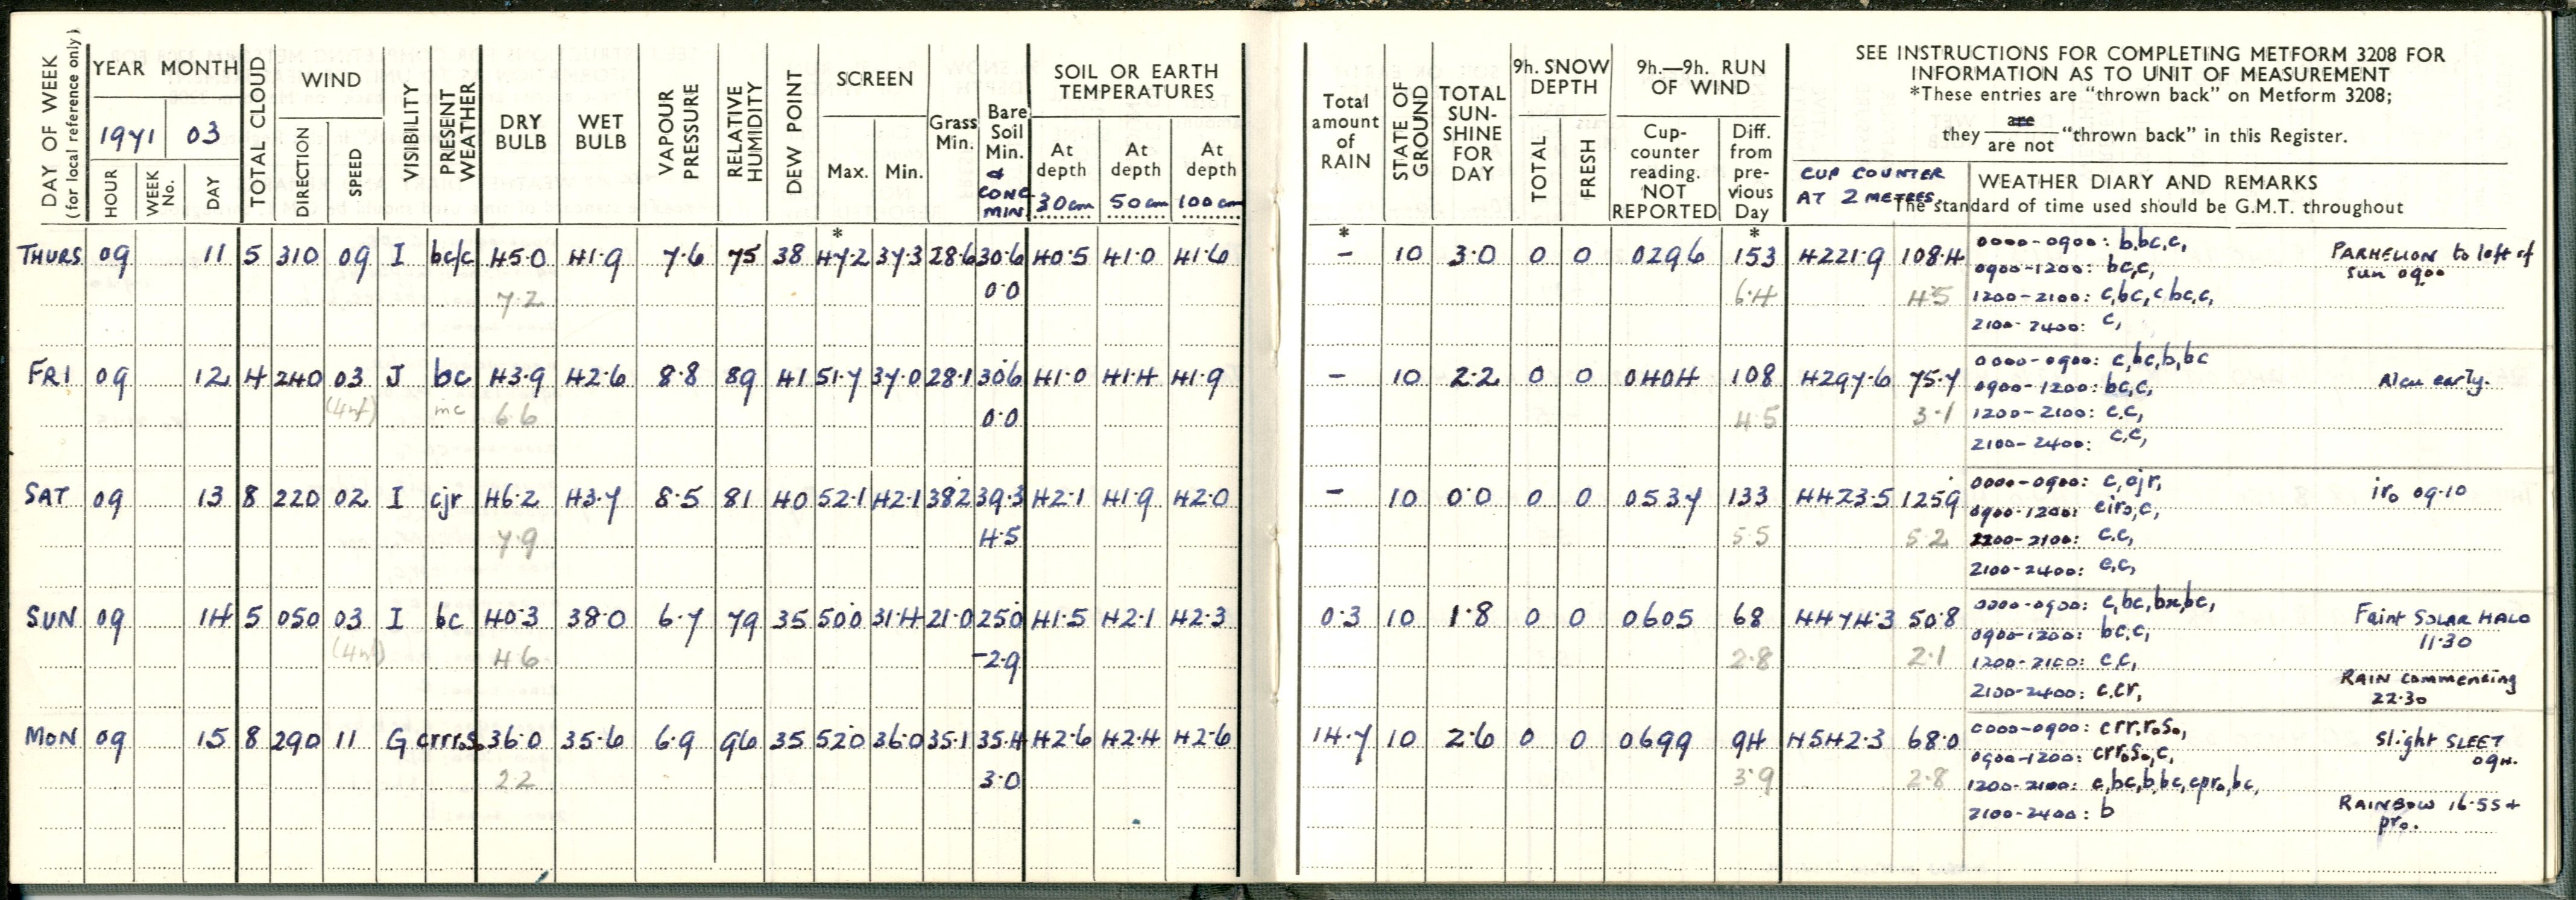 DAY OF WEEK (for local reference only)
YEAR MONTH
1971 03
HOUR WEEK No. DAY
TOTAL CLOUD
WIND
DIRECTION SPEED
VISIBILITY
PRESENT WEATHER
DRY BULB
WET BULB
VAPOUR PRESSURE
RELATIVE HUMIDITY
DEW POINT
SCREEN
Max. Min.
Grass Min.
Bare Soil Min. & CONC MIN
SOIL OR EARTH TEMPERATURES
At depth 30cm
At depth 50cm
At depth 100cm
Total amount of RAIN
STATE OF GROUND
TOTAL SUN-SHINE FOR DAY
9h. SNOW DEPTH
TOTAL FRESH
9h.—9h. RUN OF WIND
Cup-counter reading. NOT REPORTED
Diff. from pre-vious Day
SEE INSTRUCTIONS FOR COMPLETING METFORM 3208 FOR
INFORMATION AS TO UNIT OF MEASUREMENT
*These entries are "thrown back" on Metform 3208;
they are / are not "thrown back" in this Register.
CUP COUNTER
AT 2 METRES.
WEATHER DIARY AND REMARKS
The standard of time used should be G.M.T. throughout
* * *
THURS 09 11 5 310 09 I bc/c 45.0 41.9 7.6 75 38 47.2 37.3 28.6 30.6 40.5 41.0 41.6 - 10 3.0 0 0 0296 153 4221.9 108.4 0000-0900: b,bc,c, PARHELION to left of
0900-1200: bc,c, sun 0900
7.2 0.0 6.4 4.5 1200-2100: c,bc,c bc,c,
2100-2400: c,
FRI 09 12 4 240 03 J bc 43.9 42.6 8.8 89 41 51.7 37.0 28.1 30.6 41.0 41.4 41.9 - 10 2.2 0 0 0404 108 4297.6 75.7 0000-0900: c,bc,b,bc
0900-1200: bc,c, Alcu early.
(4nf) mc 6.6 0.0 4.5 3.1 1200-2100: c.c,
2100-2400: c.c,
SAT 09 13 8 220 02 I cjr 46.2 43.7 8.5 81 40 52.1 42.1 38.2 39.3 42.1 41.9 42.0 - 10 0.0 0 0 0537 133 4423.5 125.9 0000-0900: c,cjr, iro 09.10
0900-1200: ciro,c,
7.9 4.5 5.5 5.2 1200-2100: c.c,
2100-2400: c,c,
SUN 09 14 5 050 03 I bc 40.3 38.0 6.7 79 35 50.0 31.4 21.0 25.0 41.5 42.1 42.3 0.3 10 1.8 0 0 0605 68 4474.3 50.8 0000-0900: c,bc,bx,bc, Faint SOLAR HALO
0900-1200: bc,c, 11.30
(4nf) 4.6 -2.9 2.8 2.1 1200-2100: c c,
2100-2400: c.cr, RAIN commencing
22.30
MON 09 15 8 290 11 G crrroso 36.0 35.6 6.9 96 35 52.0 36.0 35.1 35.4 42.6 42.4 42.6 14.7 10 2.6 0 0 0699 94 4542.3 68.0 0000-0900: crr,roso, slight SLEET
0900-1200: crroso,c, 09H.
2.2 3.0 3.9 2.8 1200-2100: c,bc,b,bc,cpro,bc,
2100-2400: b RAINBOW 16.55 +
pro.